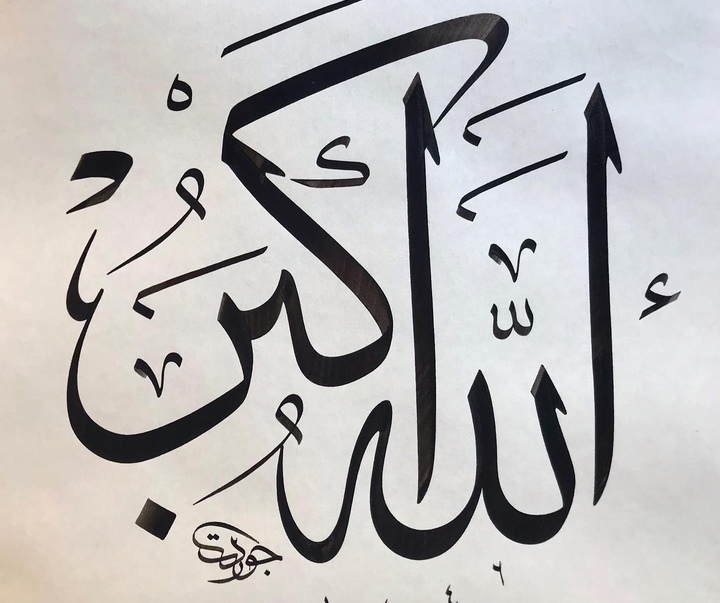 اللّٰهُ أَكْبَرُ
جودت